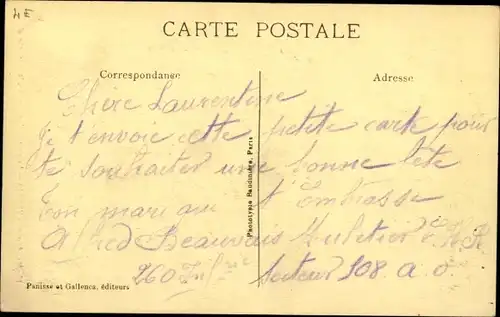 4E
CARTE POSTALE
Correspondance
Adresse
Chère Laurentine
je t'envoie cette petite carte pour
te souhaiter une bonne fête
Ton mari qui t'Embrasse
Alfred Beauvais Muletier
260 Inf rie Secteur 508 a. o.
Phototypie Baudinière, Paris
Panisse et Gallenca, éditeurs